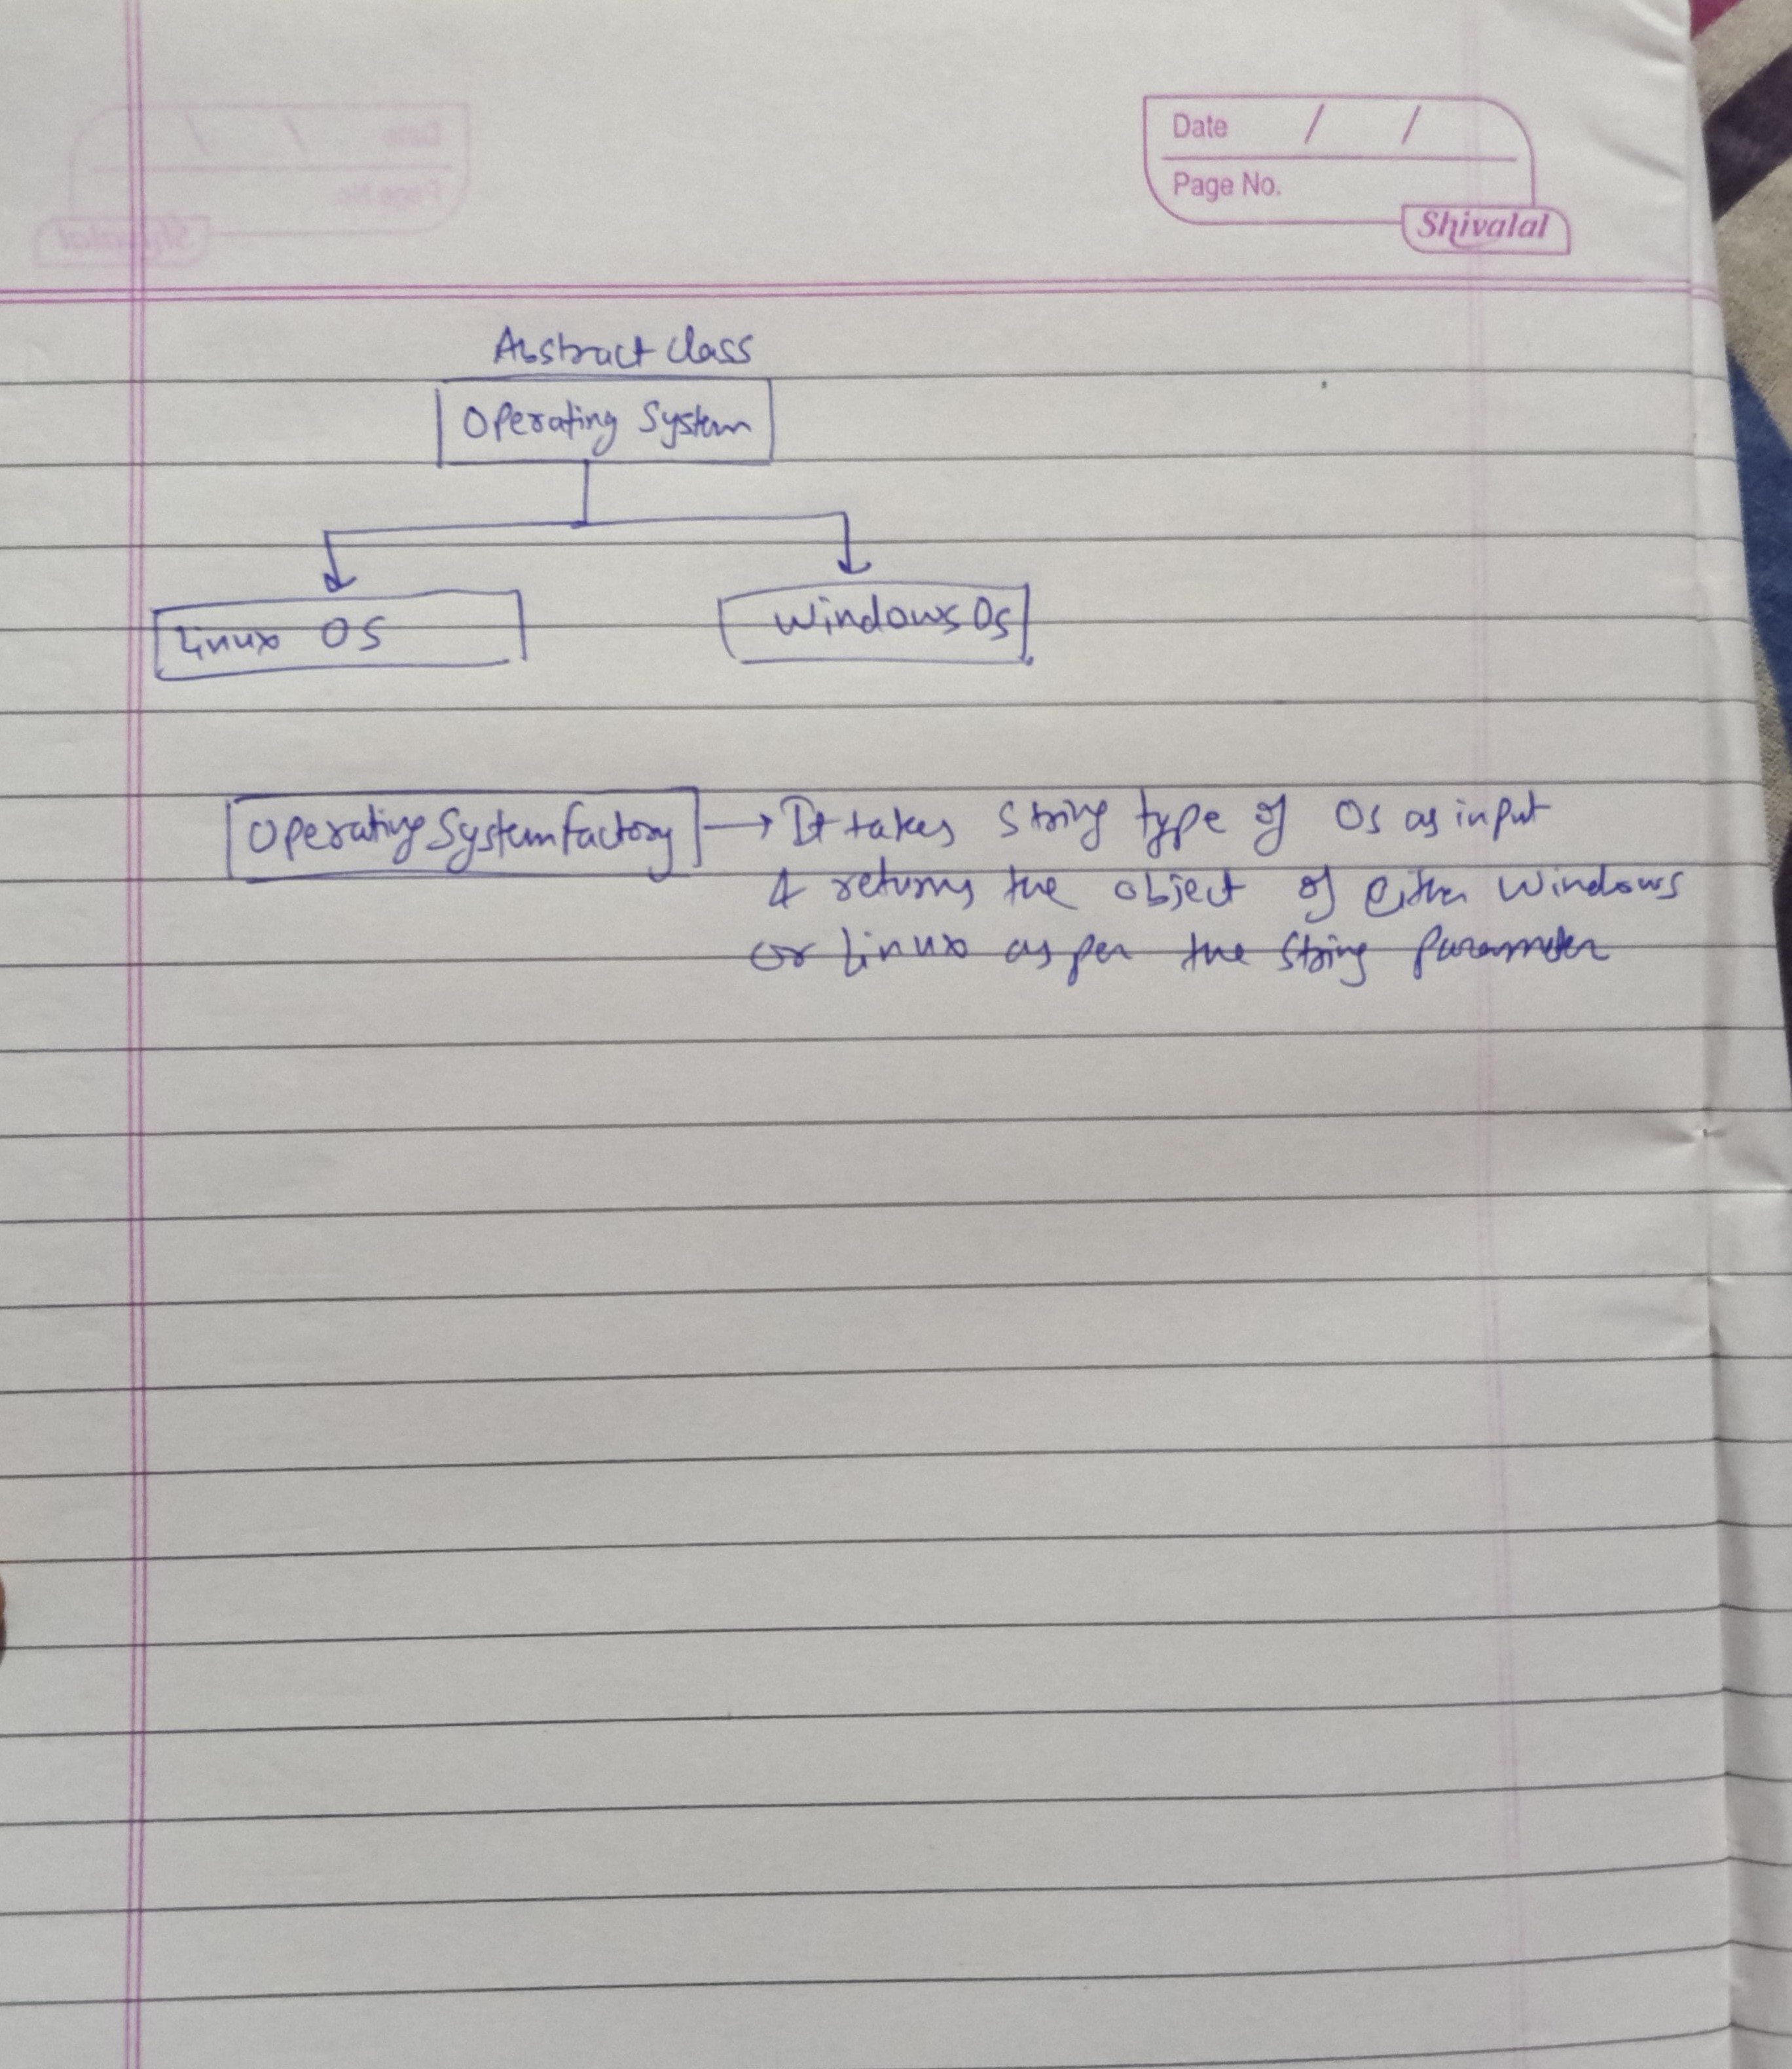 Date / /
Page No.
Shivalal
Abstract class
Operating System
Linux OS
Windows Os
OperatingSystemfactory → It takes string type of Os as input
& returns the object of either windows
or Linux as per the string parameter